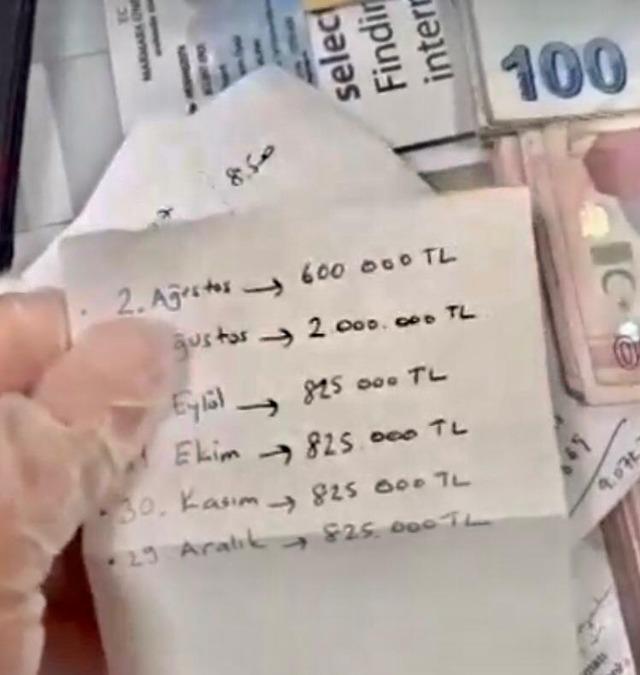 selec
Findin
inter
100
8.50
. 2. Ağustos → 600 000 TL
ğustos → 2.000.000 TL
Eylül → 825 000 TL
Ekim → 825.000 TL
. 30. Kasım → 825 000 TL
. 29 Aralık → 825.000 TL